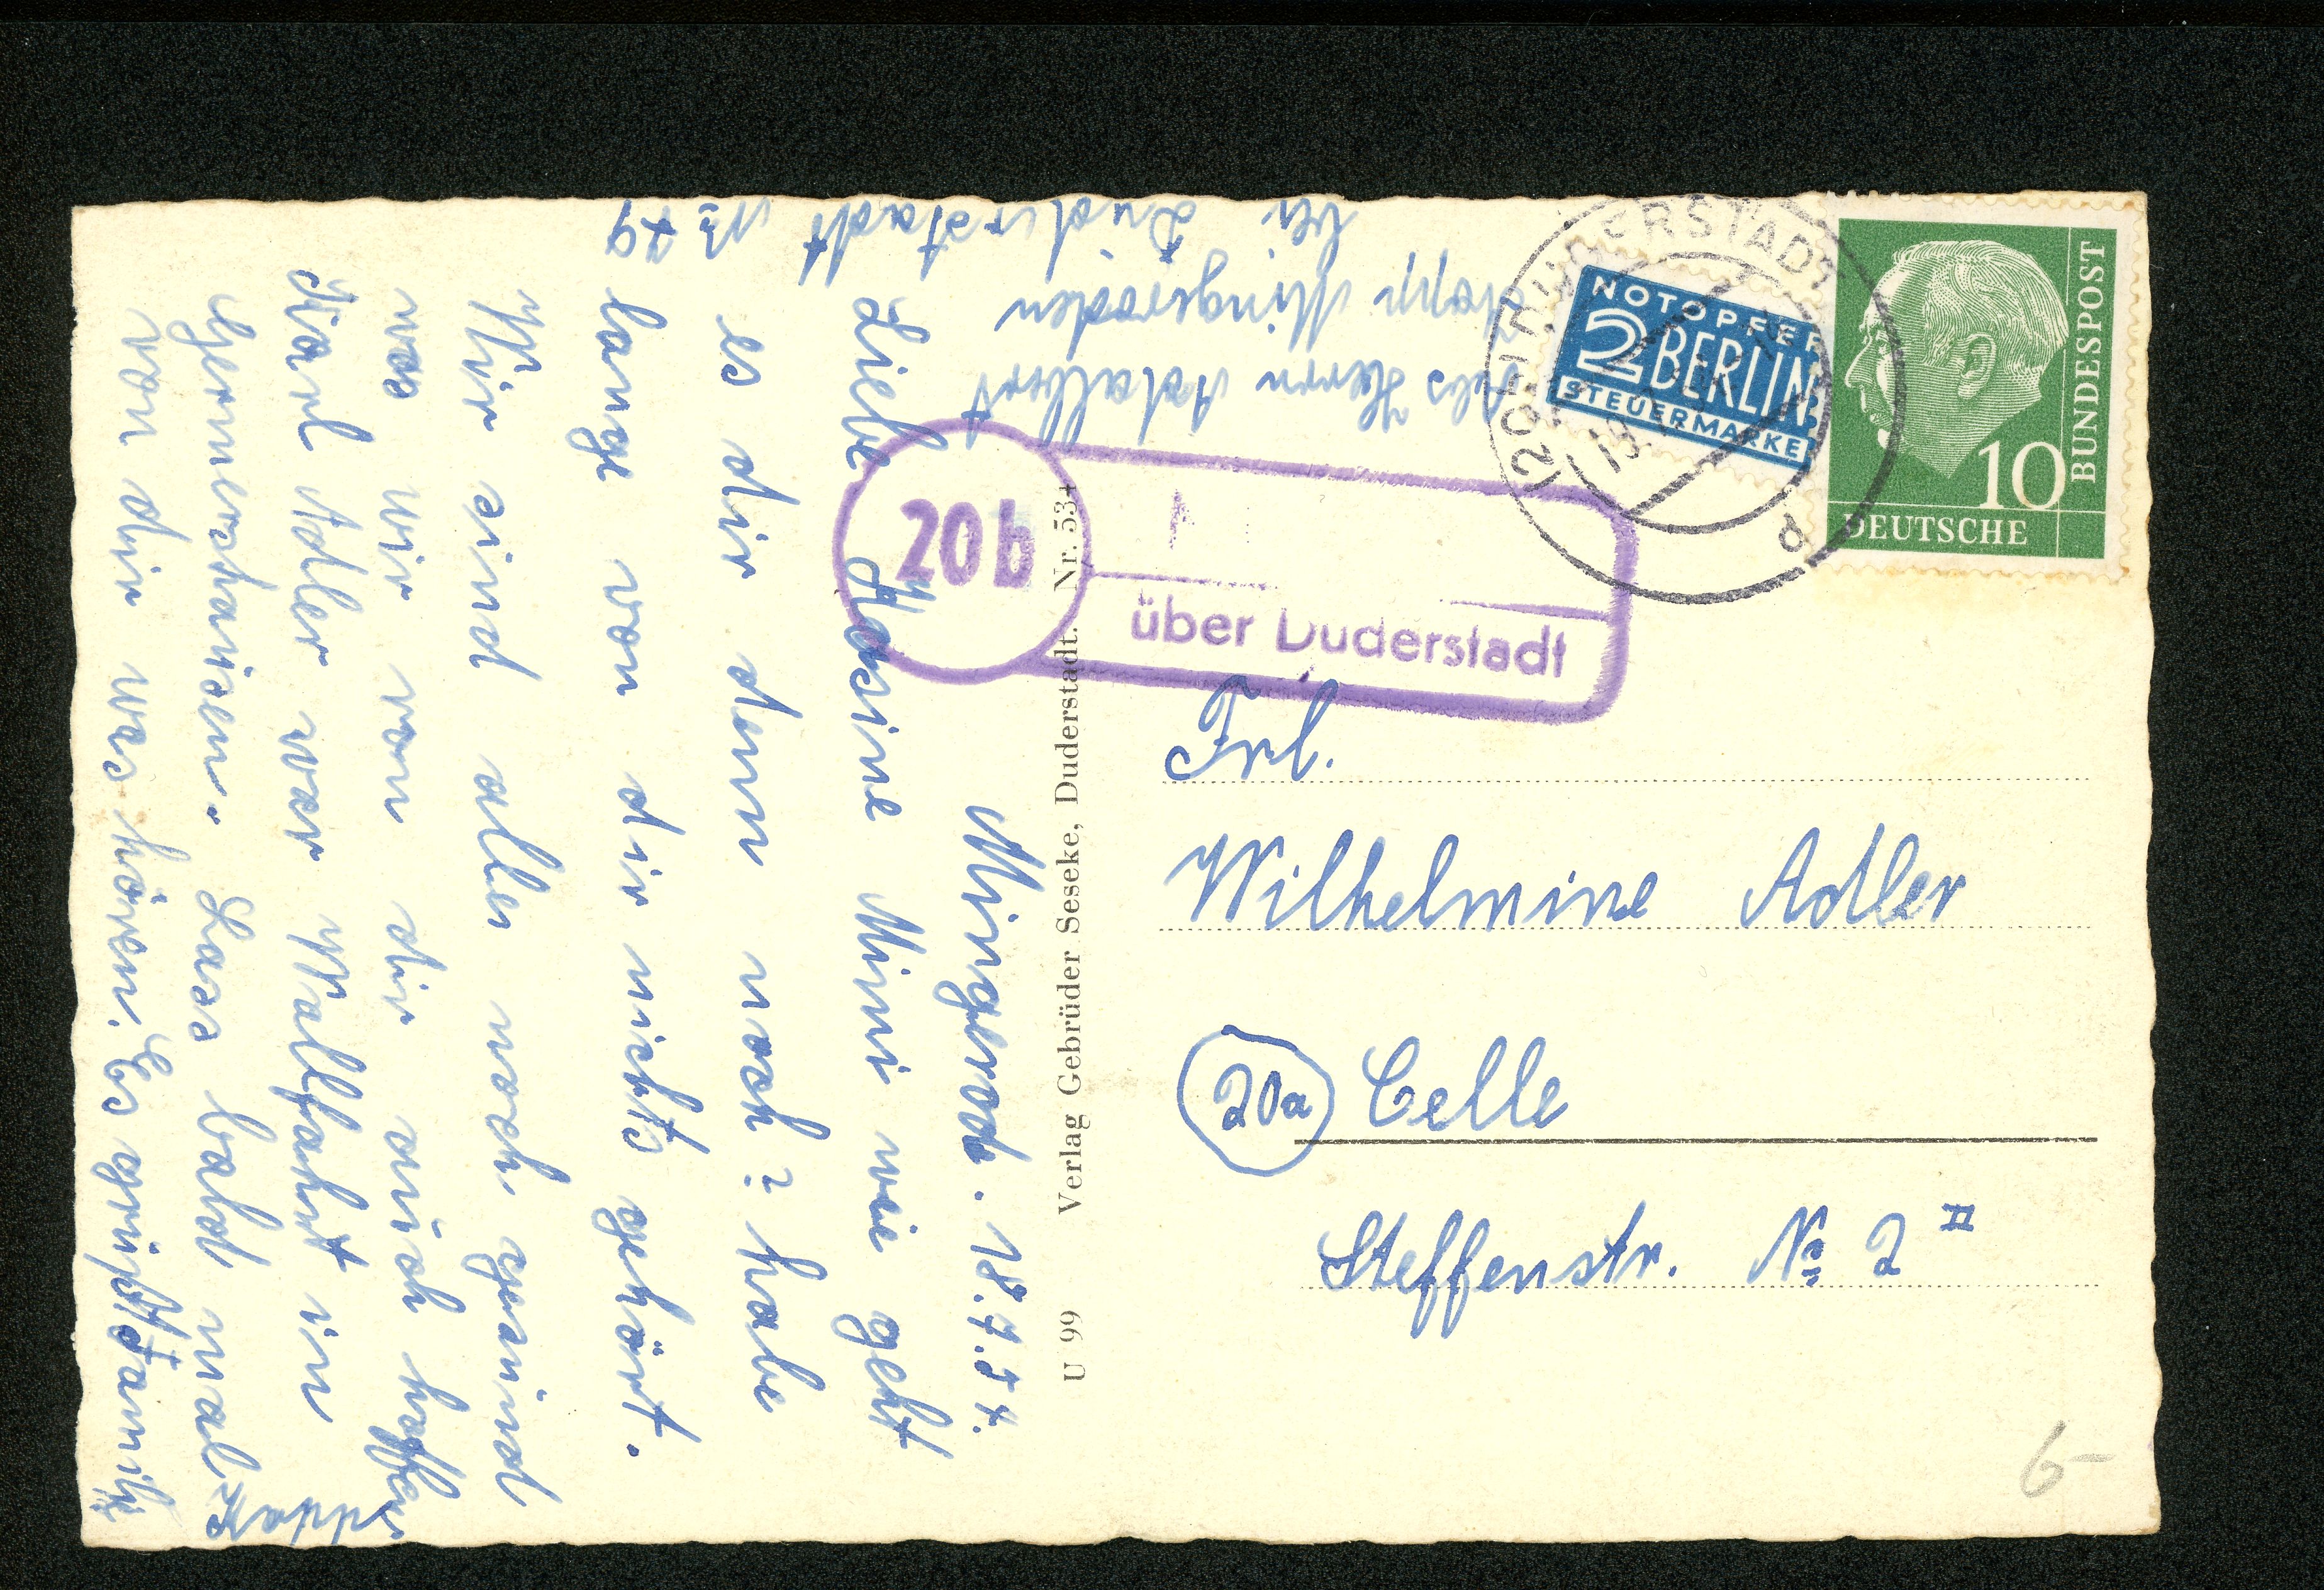 NOTOPFER
2 BERLIN
STEUERMARKE
10
DEUTSCHE
BUNDESPOST
DUDERSTADT
20b
über Duderstadt
Frl.
Wilhelmine Adler
20a Celle
Steffenstr. № 2 II
Verlag Gebrüder Seseke, Duderstadt. Nr. 534
U 99
Mingerode. 18.7.54.
Liebe Kusine Mimi wie geht
es dir denn noch? habe
lange von dir nichts gehört.
Wir sind alle noch gesund
was wir von dir auch hoffen
Karl Adler war Wallfahrt in
Germershausen. Lass bald mal
von dir was hören. Es grüßt Familie
Abs Herrn Adalbert
Kopp Mingeroden
bei Duderstadt № 79
6-